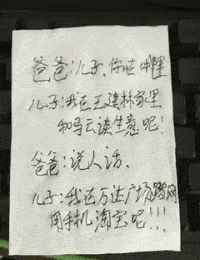 爸爸:儿子,你在哪里
儿子:我在王建林家里
和马云谈生意呢!
爸爸:说人话.
儿子:我在万达广场蹭网
用手机淘宝呢!!!